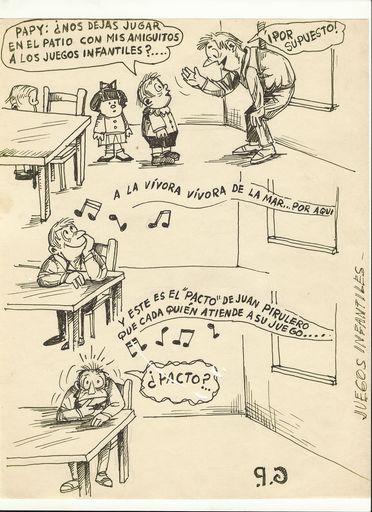 PAPY: ¿NOS DEJAS JUGAR
EN EL PATIO CON MIS AMIGUITOS
A LOS JUEGOS INFANTILES?....
¡POR
SUPUESTO!
A LA VÍVORA VÍVORA DE LA MAR...POR AQUI
Y ESTE ES EL "PACTO" DE JUAN PIRULERO
QUE CADA QUIÉN ATIENDE A SU JUEGO....
¿PACTO?...
JUEGOS INFANTILES-